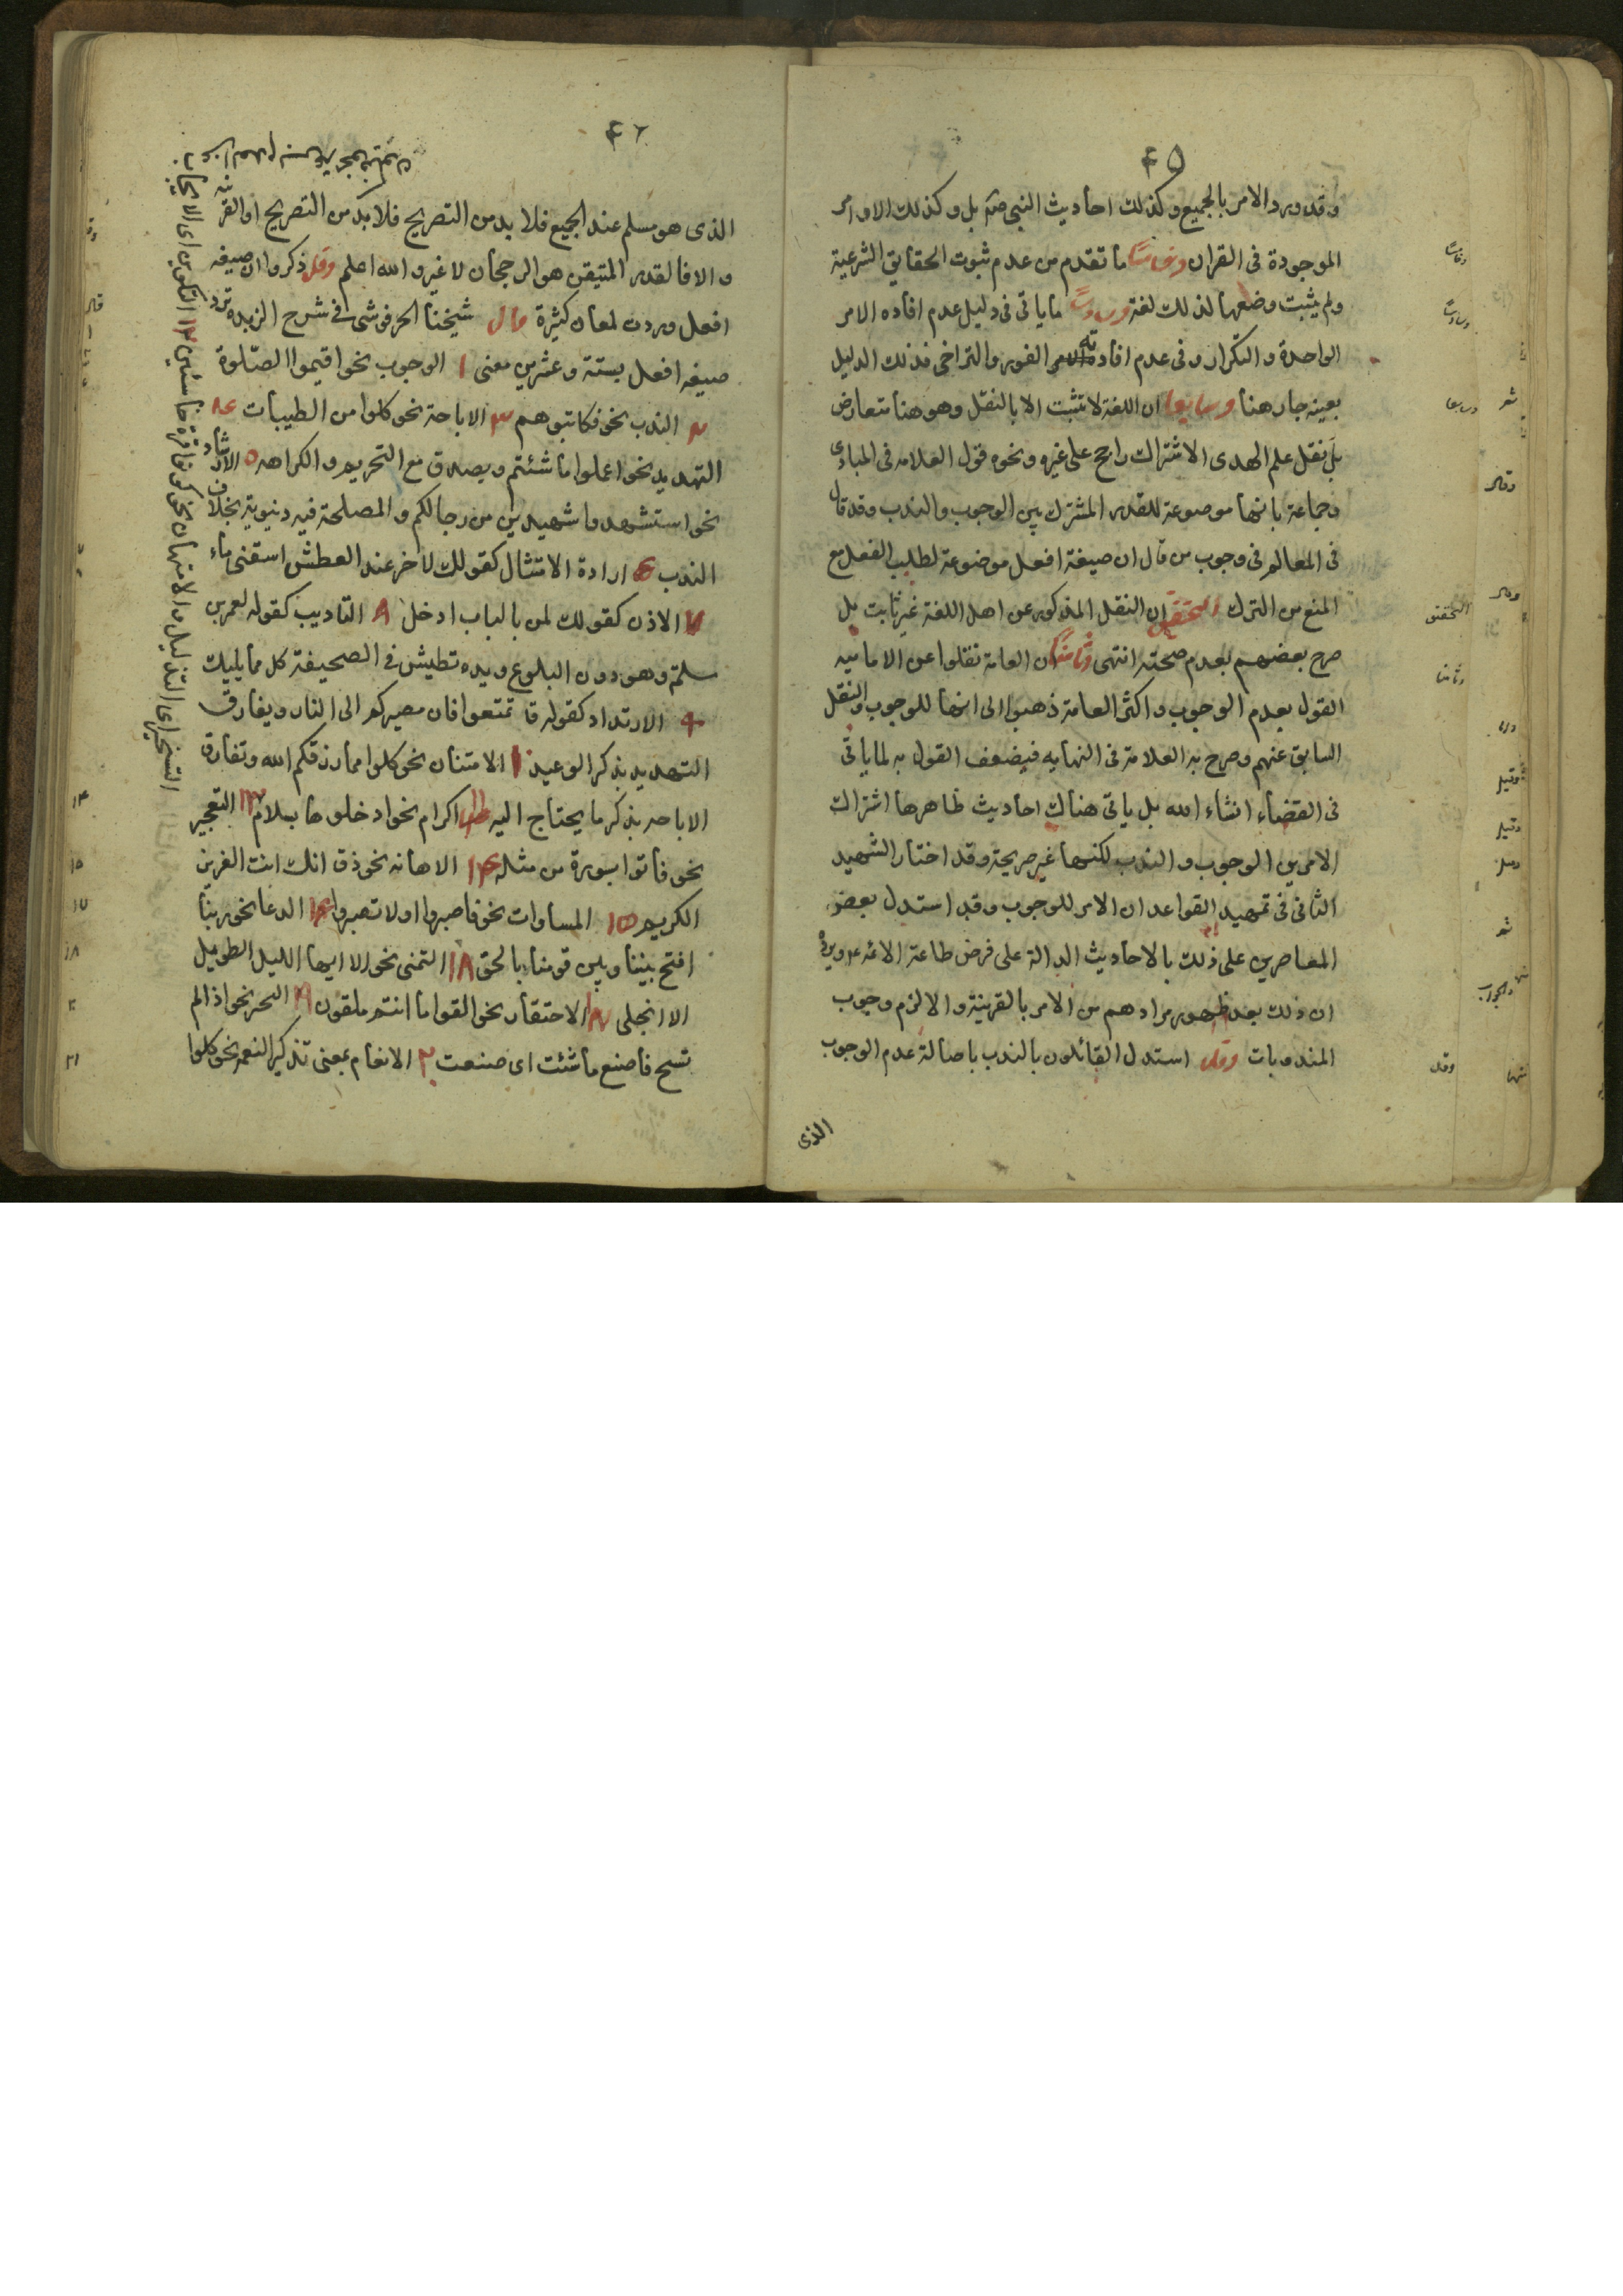 ٤٥
وقد ورد الامر بالجميع وكذلك احاديث النبى صم بل وكذلك الاوامر
الموجودة فى القران وخامسًا ما تقدم من عدم ثبوت الحقايق الشرعية
ولم يثبت وضعها لذلك لغة وسادسًا ما ياتى فى دليل عدم افاده الامر
الواحدة والتكرار وفى عدم افادته الفور والتراخى فذلك الدليل
بعينه جار هنا وسابعا ان اللغة لا تثبت الا بالنقل وهو هنا متعارض
بل نقل علم الهدى الاشتراك راجح على غيره ونحوه قول العلامه فى المبادى
وجماعة بانها موضوعة للقدر المشترك بين الوجوب والندب وقد قال
فى المعالم فى وجوب من قال ان صيغة افعل موضوعة لطلب الفعل مع
المنع من الترك التحقيق ان النقل المذكور عن اهل اللغة غير ثابت بل
صرح بعضهم بعدم صحته انتهى وثامنًا ان العامة نقلوا عن الاماميه
القول بعدم الوجوب واكثر العامة ذهبوا الى انها للوجوب والنقل
السابق عنهم وصرح به العلامة فى النهايه فيضعف القول به لما ياتى
فى القضاء انشاء الله بل ياتى هناك احاديث ظاهرها اشتراك
الامر بين الوجوب والندب لكنها غير صريحة وقد اختار الشهيد
الثانى فى تمهيد القواعد ان الامر للوجوب وقد استدل بعض
المعاصرين على ذلك بالاحاديث الدالة على فرض طاعة الائمه ع ويرده
ان ذلك بعد ظهور مرادهم من الامر بالقرينة والا لزم وجوب
المندوبات وقد استدل القائلون بالندب باصالة عدم الوجوب
الذى
وخامسًا
وسادسًا
وسابعا
التحقيق
وثامنا
وقيل
والجواب
وقد
٤٦
الذى هو مسلم عند الجميع فلا بد من التصريح فلا بد من التصريح او القرينه
والا فالقدر المتيقن هو الرجحان لا غير والله اعلم وقد ذكروا ان صيغه
افعل وردت لمعان كثيرة قال شيخنا الحرفوشى فى شرح الزبده ترد
صيغه افعل بستة وعشرين معنى ١ الوجوب نحو اقيموا الصلوة
٢ الندب نحو فكاتبوهم ٣ الاباحة نحو كلوا من الطيبات ٤
التهديد نحو اعملوا ما شئتم ويصدق مع التحريم والكراهه ٥ الارشاد
نحو استشهدوا شهيدين من رجالكم والمصلحة فيه دنيوية بخلاف
الندب ٦ ارادة الامتثال كقولك لاخر عند العطش اسقنى ماء
٧ الاذن كقولك لمن بالباب ادخل ٨ التاديب كقوله لعمر بن
سلمة وهو دون البلوغ ويده تطيش فى الصحيفة كل مما يليك
٩ الارتداد كقوله تمتعوا فان مصيركم الى النار ويفارق
التهديد بذكر الوعيد ١٠ الامتنان نحو كلوا مما رزقكم الله وتفارق
الاباحه بذكر ما يحتاج اليه ١١ اكرام نحو ادخلوها بسلام ١٣ التعجيز
نحو فاتوا بسورة من مثله ١٤ الاهانه نحو ذق انك انت العزيز
الكريم ١٥ المساوات نحو فاصبروا او لا تصبروا ١٦ الدعا نحو ربنا
افتح بيننا وبين قومنا بالحق ١٨ التمنى نحو الا ايها الليل الطويل
الا انجلى الاحتقار نحو القوا ما انتم ملقون ١٩ الخبر نحو اذا لم
تسح فاصنع ما شئت اى صنعت ٢٠ الانعام بمعنى تذكير النعمه نحو كلوا
التسخير اى التذليل والامتهان نحو كونوا قردة خاسئين ١٢ التكوين اى الايجاب
قال
١٤
١٥
١٧
١٨
٢٠
٢١